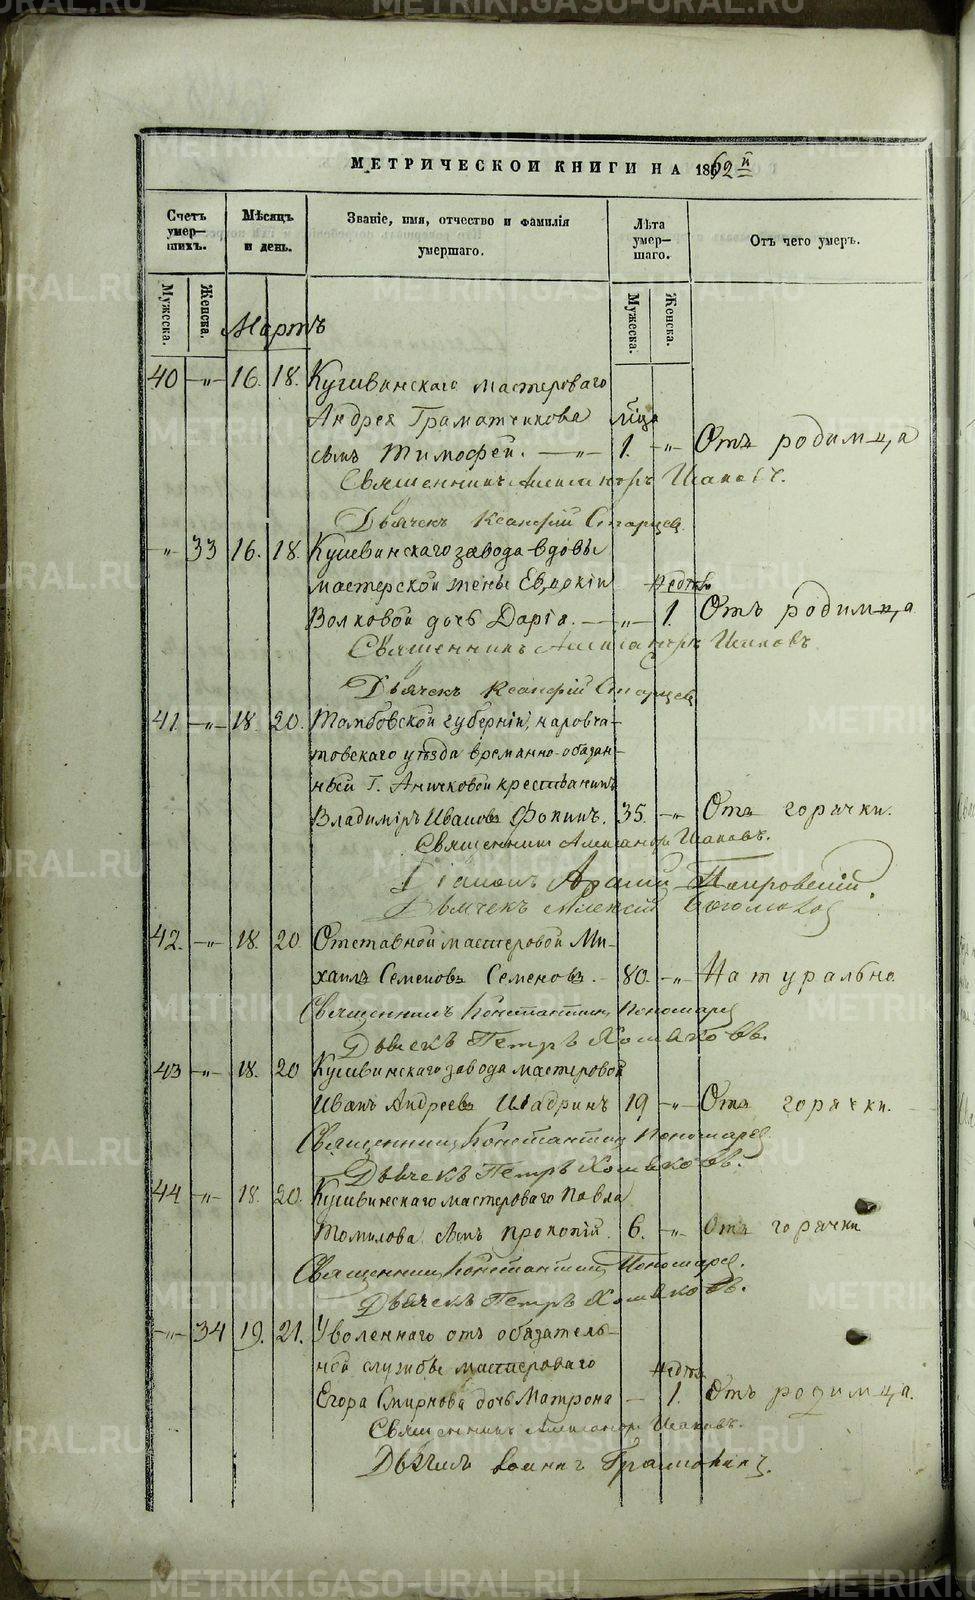 МЕТРИЧЕСКОЙ КНИГИ НА 1862 й
Счетъ умер—шихъ.
Мѣсяцъ и день.
Званіе, имя, отчество и фамилія умершаго.
Лѣта умер—шаго.
Отъ чего умеръ.
Мужеска. Женска. Мужеска. Женска.
Мартъ
40 —„— 16. 18. Кушвинскаго мастероваго
Андрея Граматчикова
сынъ Тимофей. —„— 1. —„— Отъ родимца
Священникъ Александръ Исаковъ.
Дьячекъ Ксенофій Старцев
—„— 33 16. 18. Кушвинскаго завода вдовы
мастерской жены Евдокіи Недѣль
Волковой дочь Дарія. —„— 1. Отъ родимца
Священникъ Александръ Исаковъ
Дьячекъ Ксенофій Старцев
41. —„— 18. 20. Тамбовской губерніи, наровча—
товскаго уѣзда временно-обязан—
ный Г. Аничковой крестьянинъ
Владиміръ Ивановъ Фокинъ. 35. —„— Отъ горячки.
Священникъ Александръ Исаковъ.
Діаконъ Покровскій.
Дьячекъ Алексей
42. —„— 18. 20. Отставной мастеровой Ми—
хаилъ Семеновъ Семеновъ. — 80. —„— Натурально
Священникъ Константинъ Пономарев
Дьячекъ Петръ Хомяковъ.
43 —„— 18. 20 Кушвинскаго завода мастеровой
Иванъ Андреевъ Шадринъ 19 —„— Отъ горячки.
Священникъ Константинъ Пономарев
Дьячекъ Петръ Хомяковъ.
44 —„— 18. 20. Кушвинскаго мастероваго Павла
Томилова сынъ Прокопій. 6. —„— Отъ горячки
Священникъ Константинъ Пономарев.
Дьячекъ Петръ Хомяковъ.
—„— 34 19. 21. Уволеннаго отъ обязатель—
ной службы мастероваго Недѣль
Егора Смирнова дочь Матрона — 1. Отъ родимца.
Священникъ Александръ Исаковъ.
METRIKI.GASO-URAL.RU